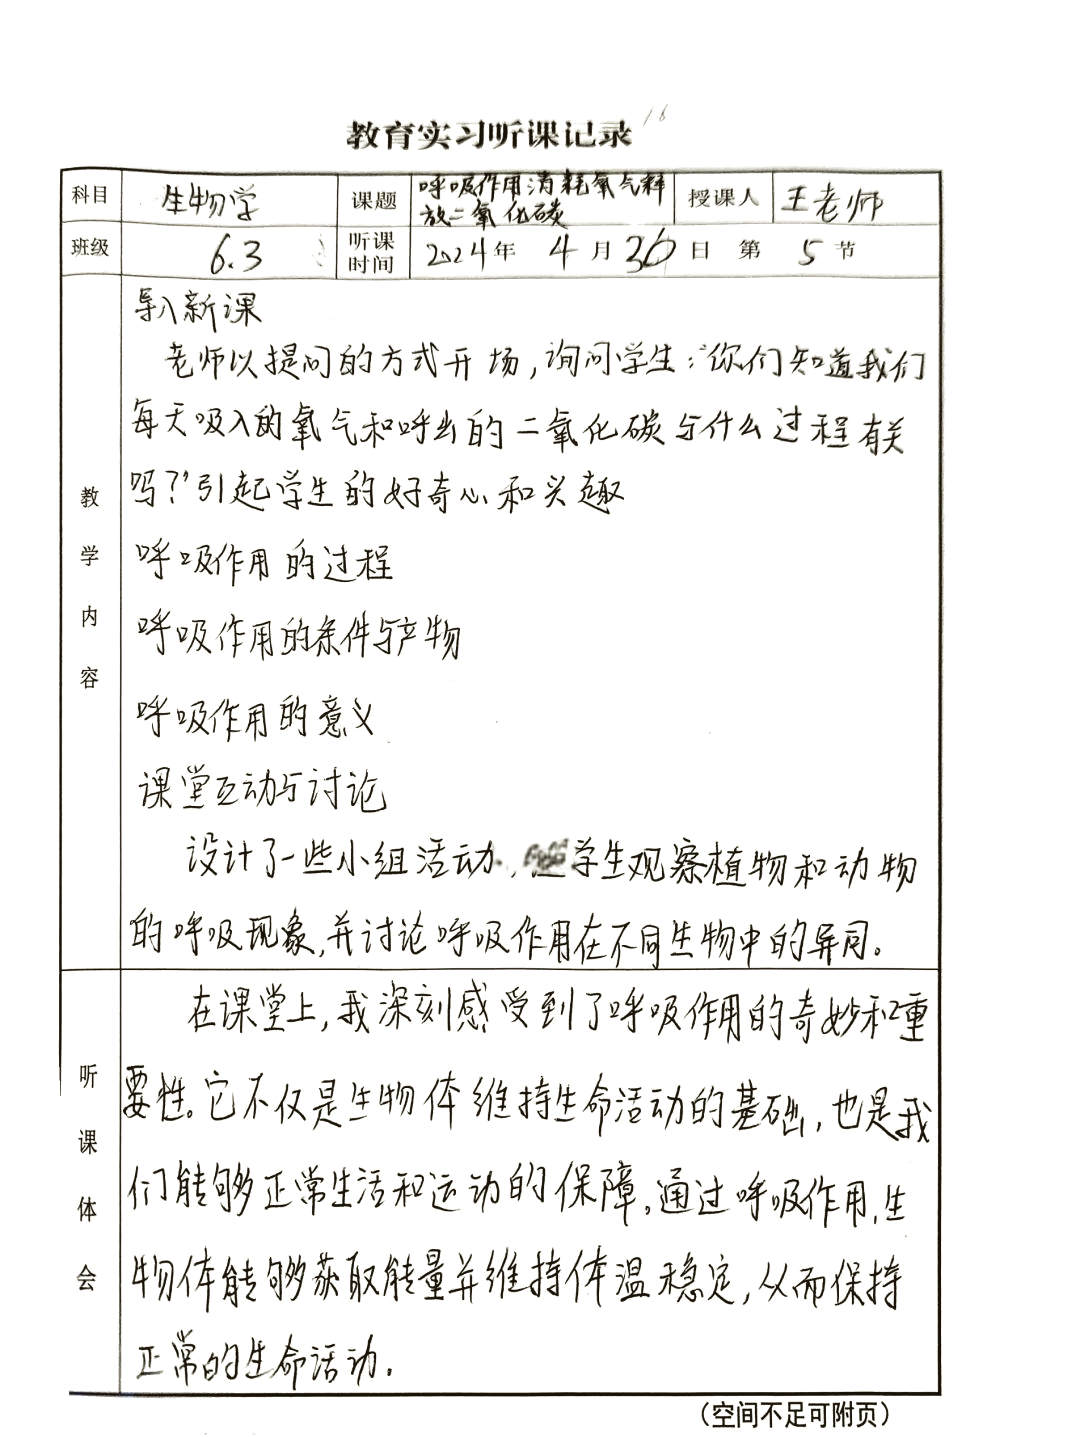 教育实习听课记录 16
科目 生物学 课题 呼吸作用消耗氧气释放二氧化碳 授课人 王老师
班级 6.3 听课时间 2024年 4 月 30 日 第 5 节
教学内容
导入新课
老师以提问的方式开场,询问学生:“你们知道我们
每天吸入的氧气和呼出的二氧化碳与什么过程有关
吗?”引起学生的好奇心和兴趣
呼吸作用的过程
呼吸作用的条件与产物
呼吸作用的意义
课堂互动与讨论
设计了一些小组活动,学生观察植物和动物
的呼吸现象,并讨论呼吸作用在不同生物中的异同。
听课体会
在课堂上,我深刻感受到了呼吸作用的奇妙和重
要性。它不仅是生物体维持生命活动的基础,也是我
们能够正常生活和运动的保障。通过呼吸作用,生
物体能够获取能量并维持体温稳定,从而保持
正常的生命活动.
(空间不足可附页)